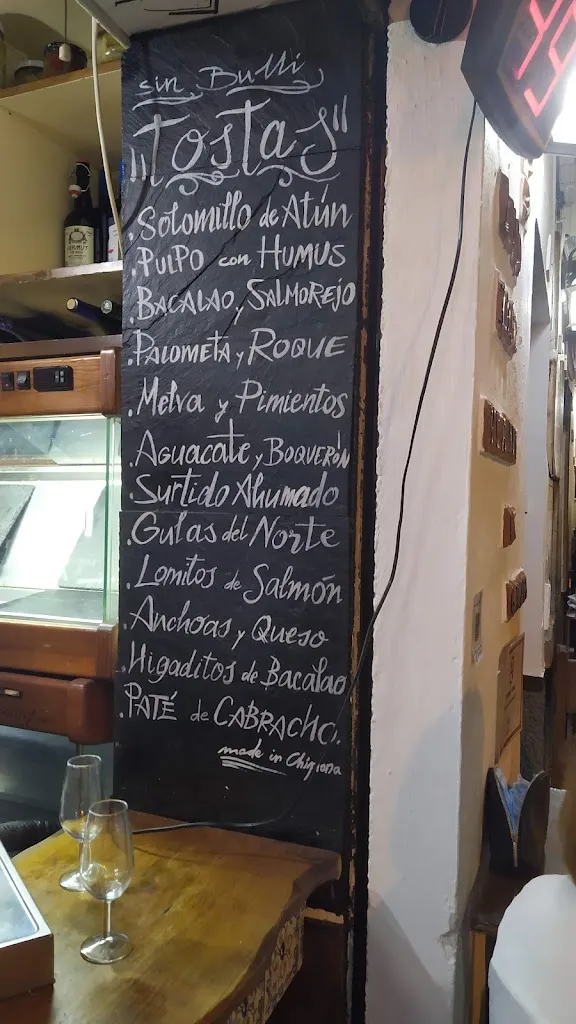 sin Bulli
"Tostas"
. Solomillo de Atún
. PULPO con HUMUS
. BACALAO y SALMOREJO
. PALOMETA y ROQUE
. Melva y Pimientos
. AGUACATE y BOQUERÓN
. Surtido Ahumado
. Gulas del Norte
. Lomitos de Salmón
. Anchoas y Queso
. Higaditos de Bacalao
. PATÉ de CABRACHO.
made in Chipiona